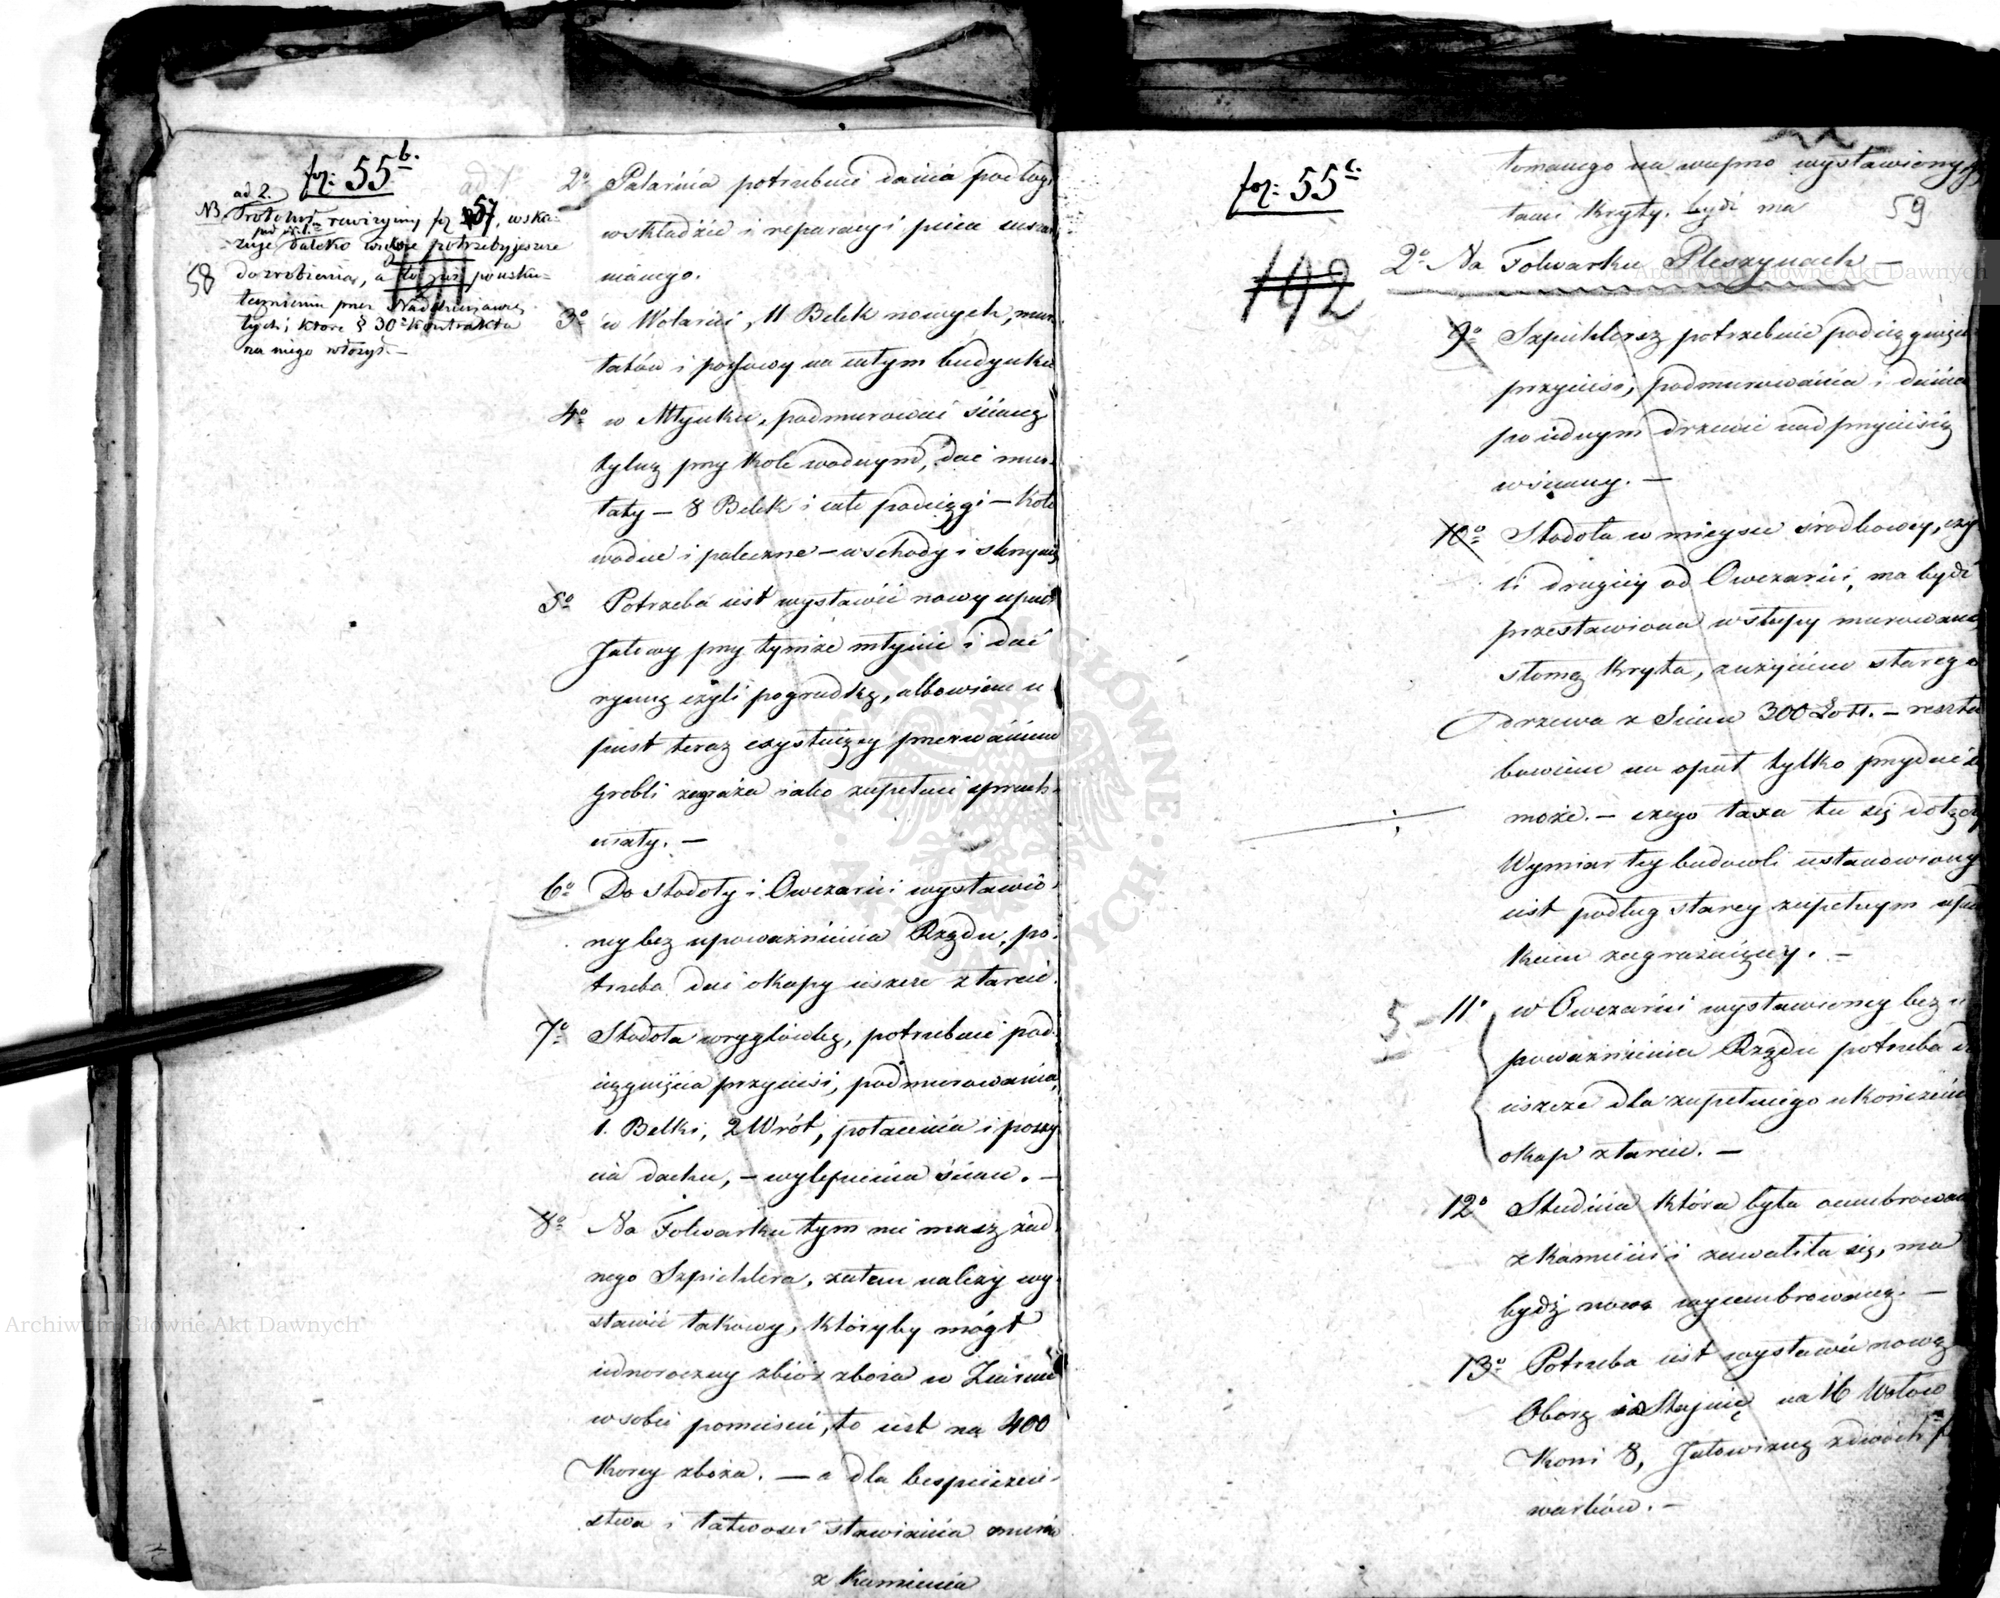 foz: 55b.
ad 2.
NB. Protokuł rewizyiny foz 57, wska-
zuje daleko więcey potrzeby jeszcze
58
do zrobienia, a to przy uszku-
tecznieniu przez Naddzierżawcę
tych, które § 30 kontraktu
na niego włożył.—
2o Palarnia potrzebuie dania podłogi
w składzie i reparacyi pieca
mianego.
3o w Wolarni, 11 Belek nowych, mur-
łatów i poszowy na całym budynku
4o w Młynku, podmurować ścianę
tylnę przy kole wodnym, dać mur-
łaty — 8 Belek i całe podciągi — Koło
wodne i paleczne — wschody i skrzynię
5o Potrzeba iest wystawić nowy upust
Jałowy przy tymże młynie i dać
rynnę czyli pogrudkę, albowiem u
pust teraz exystuiący przerwaniem
grobli zagraża iako zupełnie spruch-
niały. —
6o Do stodoły i Owczarni wystawio-
ney bez upoważnienia Rządu, po-
trzeba dać okapy ieszcze z tarcic.
7o Stodoła w rygłówkę, potrzebuie pod-
ciągnięcia przyciesi, podmurowania,
1. Belki, 2 Wrót, połacenia i poszy-
cia dachu, — wylepienia ścian. —
8o Na Folwarku tym nie masz żad-
nego Szpichlera, zatem należy wy-
stawić takowy, któryby mógł
iednoroczny zbiór zboża w Ziarnie
w sobie pomieścić, to iest na 400
Korcy zboża. — a dla bespieczeń-
stwa i łatwości stawienia muru
z Kamienia
foz: 55c.
192
łomanego na wapno wystawiony
łami kryty, bydź ma
59
2o Na Folwarku Pleszynach —
9o Szpichlerz potrzebuie podciągnięcia
przyciesi, podmurowania i dania
po iednym drzewie nad przyciesią
w ściany. —
10o Stodoła w mieysce środkowey, czy-
li drugiey od Owczarni, ma bydź
przestawiona w słupy murowane
słomą kryta, z użyciem starego
drzewa z Summ 300 Złott. — reszta
bowiem na opał tylko przydać się
może. — czego taxa tu się dołącza
Wymiar tey budowli ustanowiony
iest podług starey zupełnym upad-
kiem zagrażaiącey. —
5 — 11o w Owczarni wystawioney bez u-
poważnienia Rządu potrzeba da
ieszcze dla zupełnego ukończenia
okap z tarcic. —
12o Studnia która była ocembrowana
z kamieni i zawaliła się, ma
bydź nowo wycembrowaną. —
13o Potrzeba iest wystawić nową
Oborę i Stajnię na 16 Wołów
Koni 8, Jałowiznę z dwóch fol
warków. —
Archiwum Główne Akt Dawnych
Archiwum Główne Akt Dawnych